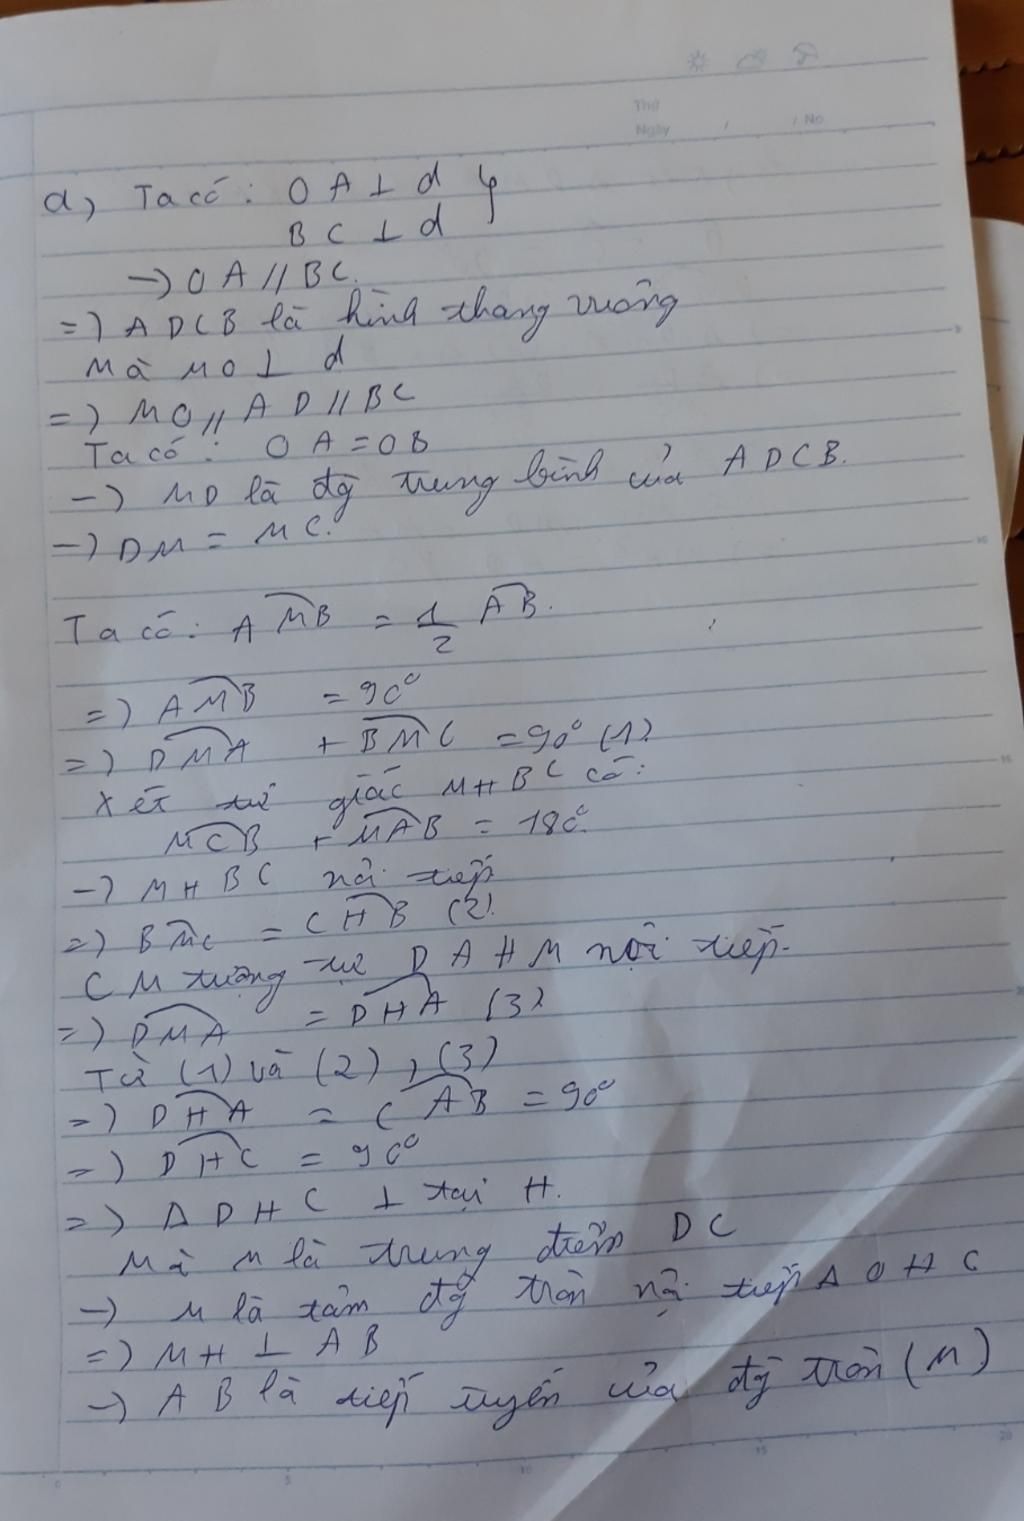 Thứ
Ngày / / No
a) Ta có: OA ⊥ d }
BC ⊥ d
→ OA // BC.
=> ADCB là hình thang vuông
Mà MO ⊥ d
=> MO // AD // BC
Ta có: OA = OB
→ MD là đg trung bình của ADCB.
→ DM = MC.
Ta có: AM̂B = 1/2 AB.
=> AM̂B = 90°
=> DM̂A + BM̂C = 90° (1)
Xét tứ giác MHBC có:
MĈB + MÂB = 180.
→ MHBC nội tiếp
=> BM̂C = CĤB (2)
CM tương tự DAHM nội tiếp.
=> DM̂A = DĤA (3)
Từ (1) và (2), (3)
=> DĤA = CÂB = 90°
=> DĤC = 90°
=> Δ DHC ⊥ tại H.
Mà M là trung điểm DC
→ M là tâm đg tròn nội tiếp Δ OHC
=> MH ⊥ AB
→ AB là tiếp tuyến của đg tròn (M)
0 5 10 15 20